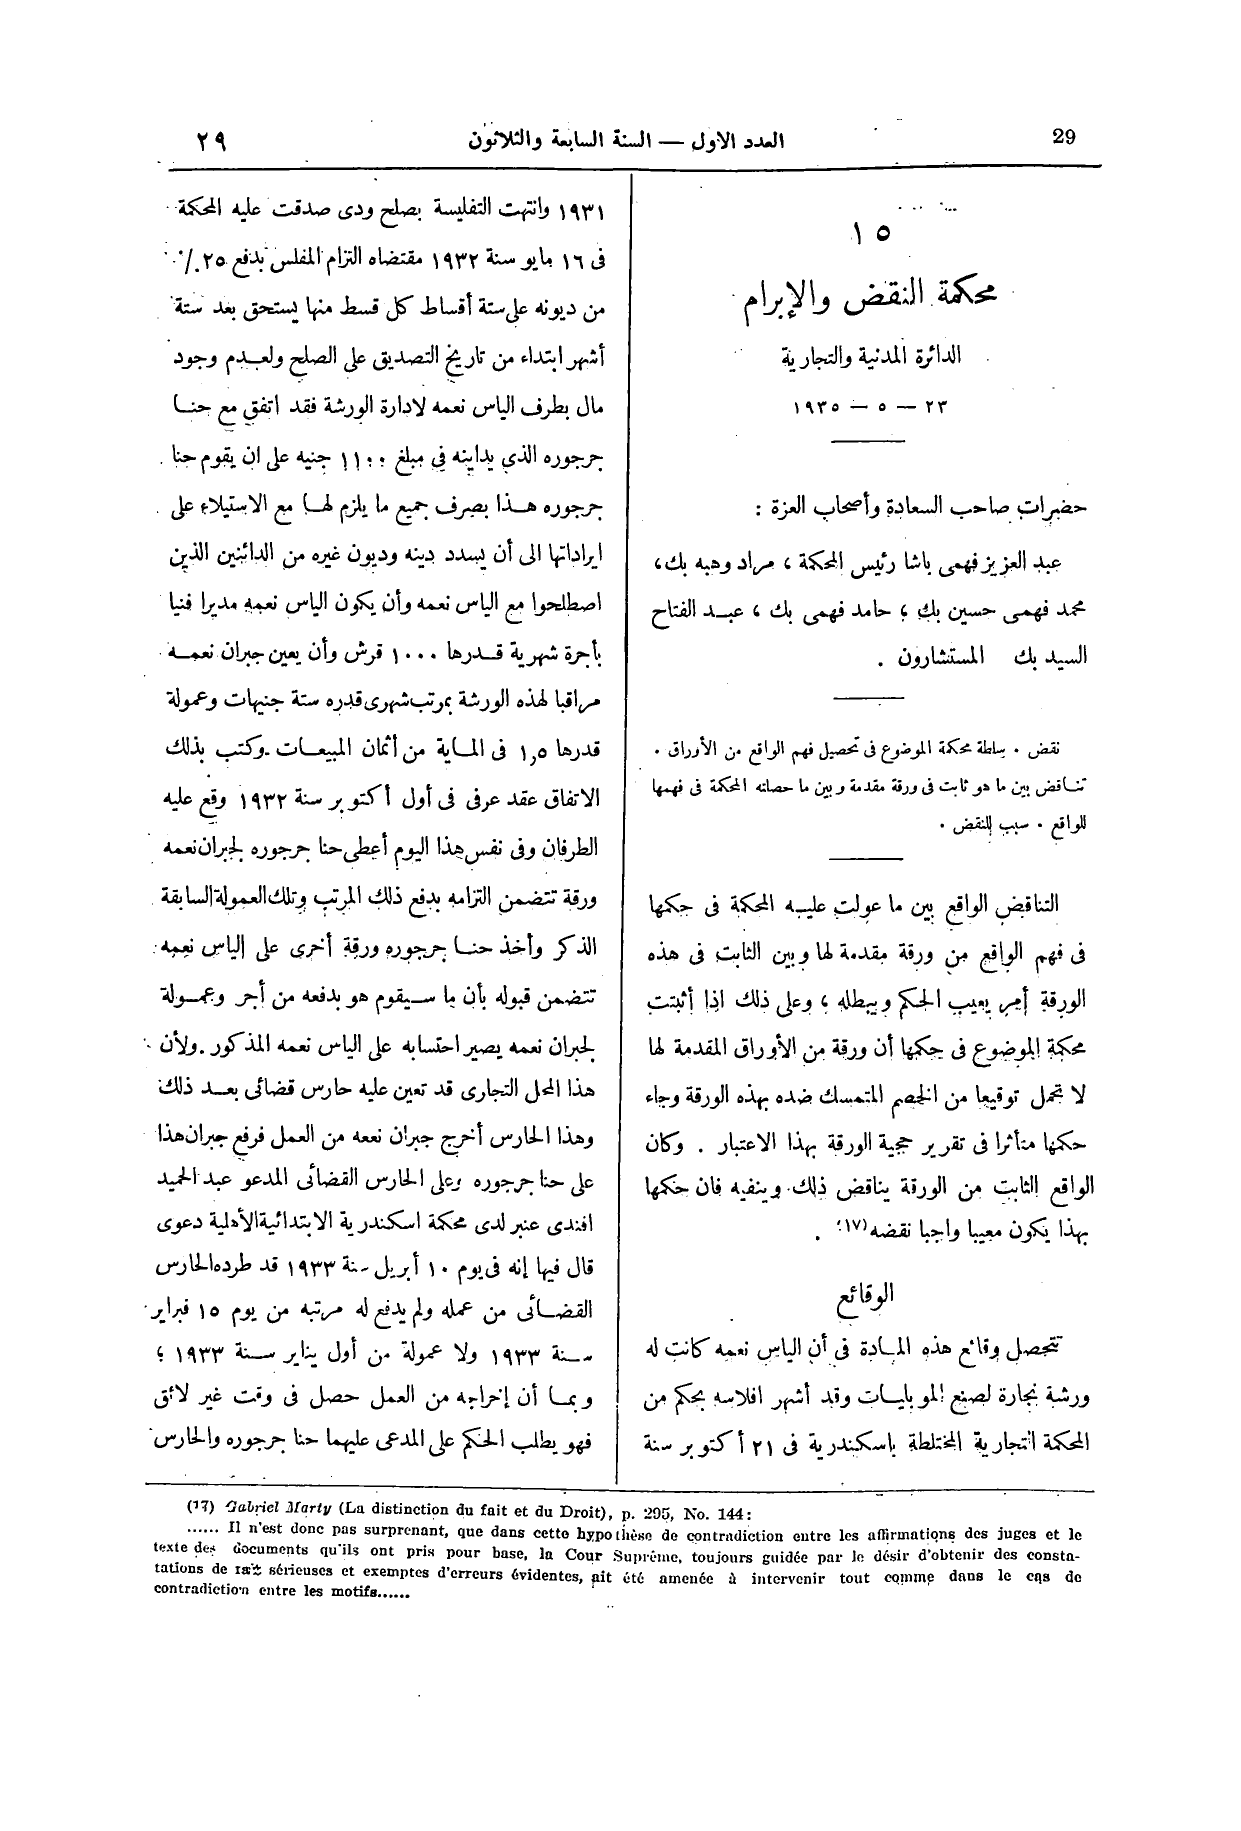 29
العدد الاول — السنة السابعة والثلاثون
٢٩
١٥
محكمة النقض والإبرام
الدائرة المدنية والتجارية
٢٣ — ٥ — ١٩٣٥
حضرات صاحب السعادة وأصحاب العزة :
عبد العزيز فهمى باشا رئيس المحكمة ، مراد وهبه بك ،
محمد فهمى حسين بك ، حامد فهمى بك ، عبد الفتاح
السيد بك المستشارون .
نقض . سلطة محكمة الموضوع فى تحصيل فهم الواقع من الأوراق .
تناقض بين ما هو ثابت فى ورقة مقدمة وبين ما حصلته المحكمة فى فهمها
للواقع . سبب للنقض .
التناقض الواقع بين ما عولت عليه المحكمة فى حكمها
فى فهم الواقع من ورقة مقدمة لها وبين الثابت فى هذه
الورقة أمر يعيب الحكم ويبطله ، وعلى ذلك اذا أثبتت
محكمة الموضوع فى حكمها أن ورقة من الأوراق المقدمة لها
لا تحمل توقيعا من الخصم المتمسك ضده بهذه الورقة وجاء
حكمها متأثرا فى تقرير حجية الورقة بهذا الاعتبار . وكان
الواقع الثابت من الورقة يناقض ذلك وينفيه فان حكمها
بهذا يكون معيبا واجبا نقضه (١٧) .
الوقائع
تتحصل وقائع هذه المادة فى أن الياس نعمه كانت له
ورشة نجارة لصنع الموبليات وقد أشهر افلاسه بحكم من
المحكمة التجارية المختلطة باسكندرية فى ٢١ أكتوبر سنة
١٩٣١ وانتهت التفليسة بصلح ودى صدقت عليه المحكمة
فى ١٦ مايو سنة ١٩٣٢ مقتضاه التزام المفلس بدفع ٢٥ ٪
من ديونه على ستة أقساط كل قسط منها يستحق بعد ستة
أشهر ابتداء من تاريخ التصديق على الصلح ولعدم وجود
مال بطرف الياس نعمه لادارة الورشة فقد اتفق مع حنا
جرجوره الذي يداينه فى مبلغ ١١٠٠ جنيه على ان يقوم حنا
جرجوره هذا بصرف جميع ما يلزم لها مع الاستيلاء على
ايراداتها الى أن يسدد دينه وديون غيره من الدائنين الذين
اصطلحوا مع الياس نعمه وأن يكون الياس نعمه مديرا فنيا
بأجرة شهرية قدرها ١٠٠٠ قرش وأن يعين جبران نعمه
مراقبا لهذه الورشة بمرتب شهرى قدره ستة جنيهات وعمولة
قدرها ١,٥ فى الماية من أثمان المبيعات . وكتب بذلك
الاتفاق عقد عرفى فى أول أكتوبر سنة ١٩٣٢ وقع عليه
الطرفان وفى نفس هذا اليوم أعطى حنا جرجوره لجبران نعمه
ورقة تتضمن التزامه بدفع ذلك المرتب وتلك العمولة السابقة
الذكر وأخذ حنا جرجوره ورقة أخرى على إلياس نعمه
تتضمن قبوله بأن ما سيقوم هو بدفعه من أجر وعمولة
لجبران نعمه يصير احتسابه على الياس نعمه المذكور . ولأن
هذا المحل التجارى قد تعين عليه حارس قضائى بعد ذلك
وهذا الحارس أخرج جبران نعمه من العمل فرفع جبران هذا
على حنا جرجوره وعلى الحارس القضائى المدعو عبد الحميد
افندى عنبر لدى محكمة اسكندرية الابتدائية الأهلية دعوى
قال فيها إنه فى يوم ١٠ أبريل سنة ١٩٣٣ قد طرده الحارس
القضائى من عمله ولم يدفع له مرتبه من يوم ١٥ فبراير
سنة ١٩٣٣ ولا عمولة من أول يناير سنة ١٩٣٣ ؛
وبما أن إخراجه من العمل حصل فى وقت غير لائق
فهو يطلب الحكم على المدعى عليهما حنا جرجوره والحارس
(17) Gabriel Marty (La distinction du fait et du Droit), p. 295, No. 144:
...... Il n'est donc pas surprenant, que dans cette hypothèse de contradiction entre les affirmations des juges et le
texte des documents qu'ils ont pris pour base, la Cour Suprême, toujours guidée par le désir d'obtenir des consta-
tations de fait sérieuses et exemptes d'erreurs évidentes, ait été amenée à intervenir tout comme dans le cas de
contradiction entre les motifs......